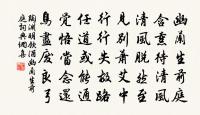 幽蘭生前庭
含薰待清風
清風脫然至
見別蕭艾中
行行失故路
任道或能通
覺悟當念還
鳥盡廢良弓
陶淵明飲酒幽蘭生前
庭詞典網